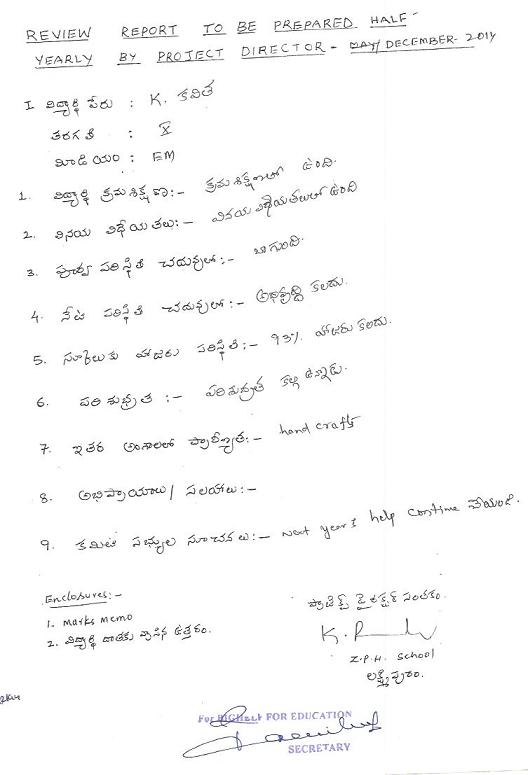 REVIEW REPORT TO BE PREPARED HALF-
YEARLY BY PROJECT DIRECTOR - MAY/DECEMBER-2014
I విద్యార్థి పేరు : K. కవిత
తరగతి : X
మీడియం : EM
1. విద్యార్థి క్రమశిక్షణ:- క్రమశిక్షణలో ఉంది.
2. వినయ విధేయతలు:- వినయ విధేయతలలో ఉంది
3. పూర్వ పరిస్థితి చదువులో:- బాగుంది.
4. నేటి పరిస్థితి చదువులో:- అభివృద్ధి కలదు.
5. స్కూలుకు హాజరు పరిస్థితి:- 93% హాజరు కలదు.
6. పరిశుభ్రత :- పరిశుభ్రత కల్గి ఉన్నాడు.
7. ఇతర అంశాలలో ప్రావీణ్యత:- hand crafts
8. అభిప్రాయాలు/ సలహాలు:-
9. కమిటి సభ్యుల సూచనలు:- next year help continue చేయండి.
Enclosures:-
1. Marks memo
2. విద్యార్థి దాతకు వ్రాసిన ఉత్తరం.
ప్రాజెక్ట్ డైరెక్టర్ సంతకం.
Z.P.H. School
లక్ష్మీపురం.
For FOR EDUCATION
SECRETARY